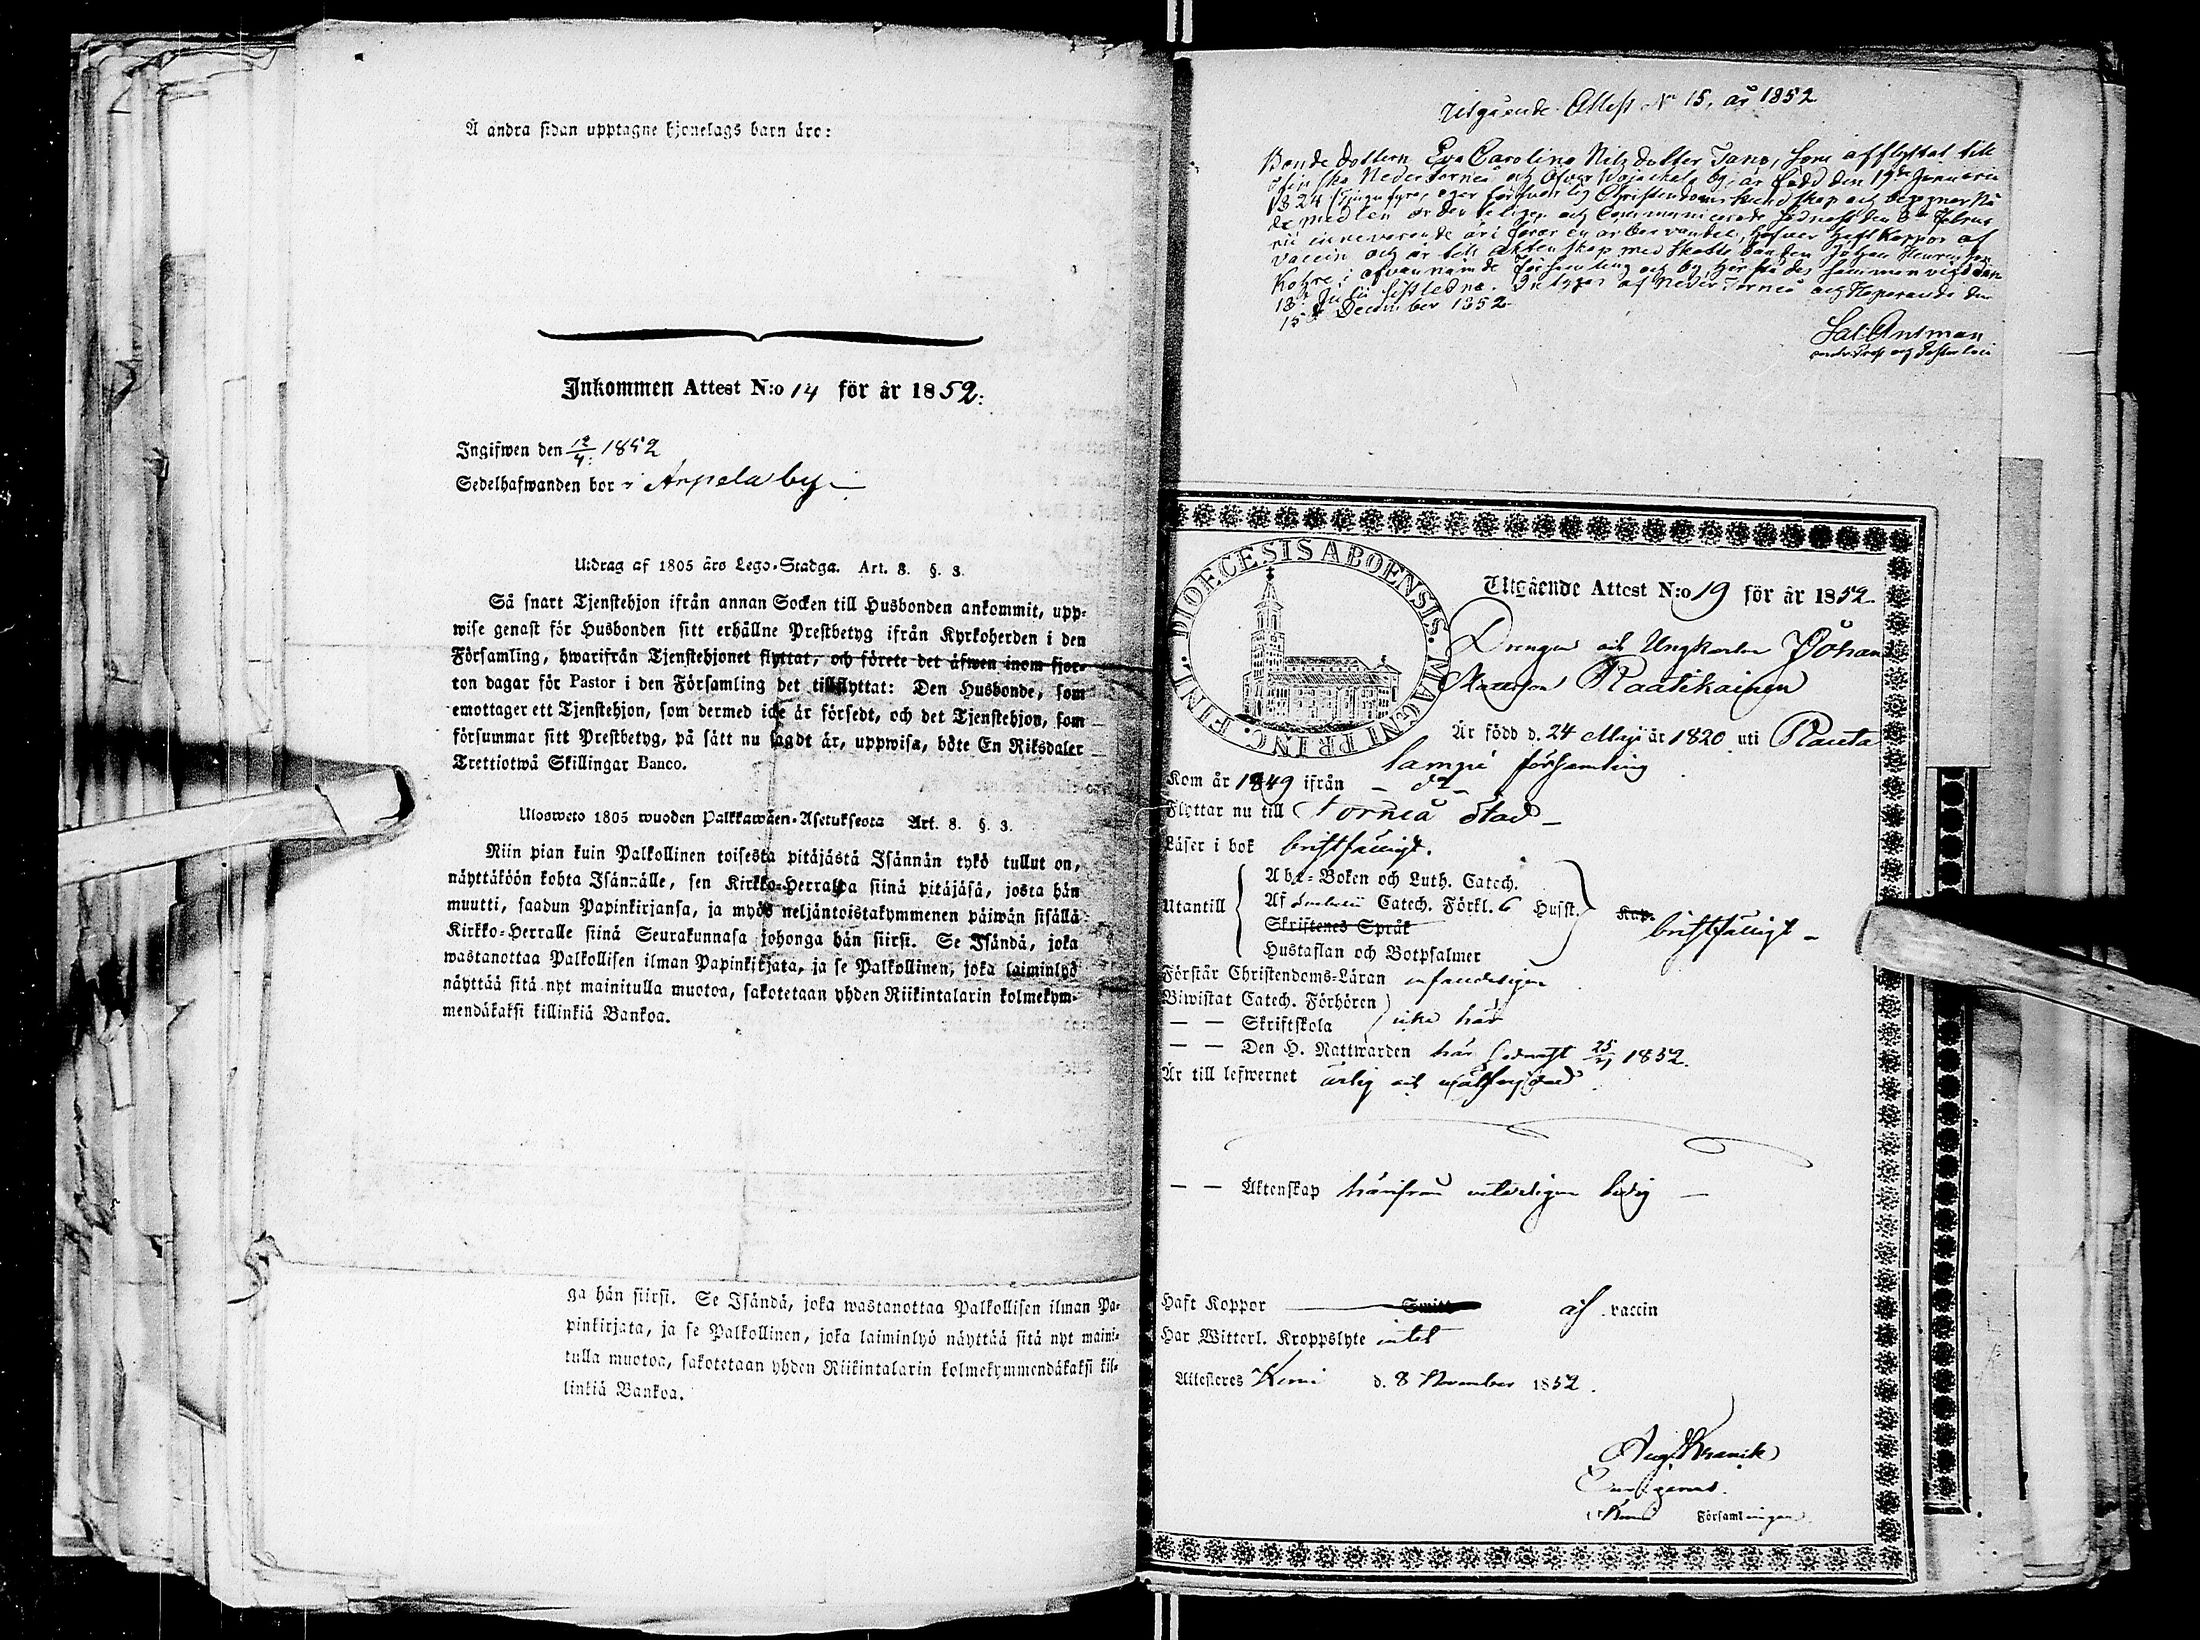 Å andra sidan upptagne hjonelags barn äro:
Inkommen Attest N:o 14 för år 1852.
Ingifwen den 12/4: 1852
Sedelhafwanden bor i Arpela by
Utdrag af 1805 års Lego-Stadga. Art. 8. §. 3.
Så snart Tjenstehjon ifrån annan Socken till Husbonden ankommit, upp-
wise genast för Husbonden sitt erhållne Prestbetyg ifrån Kyrkoherden i den
Församling, hwarifrån Tjenstehjonet flyttat, och förete det äfwen inom fjor-
ton dagar för Pastor i den Församling det tillflyttat: Den Husbonde, som
emottager ett Tjenstehjon, som dermed icke är försedt, och det Tjenstehjon, som
försummar sitt Prestbetyg, på sätt nu sagdt är, uppwisa, böte En Riksdaler
Trettiotwå Skillingar Banco.
Ulosweto 1805 wuoden Palkkawäen-Asetuksesta Art. 8. §. 3.
Niin pian kuin Palkollinen toisesta pitäjästä Isännän tykö tullut on,
näyttäköön kohta Isännälle, sen Kirkko-Herralta siinä pitäjäsä, josta hän
muutti, saadun Papinkirjansa, ja myös neljäntoistakymmenen päiwän sisällä
Kirkko-Herralle siinä Seurakunnasa johonga hän siirsi. Se Isändä, joka
wastanottaa Palkollisen ilman Papinkirjata, ja se Palkollinen, joka laiminlyö
näyttää sitä nyt mainitulla muotoa, sakotetaan yhden Riikintalarin kolmekym-
mendäkaksi killinkiä Bankoa.
ga hän siirsi. Se Isändä, joka wastanottaa Palkollisen ilman Pa-
pinkirjata, ja se Palkollinen, joka laiminlyö näyttää sitä nyt maini-
tulla muotoa, sakotetaan yhden Riikintalarin kolmekymmendäkaksi kil-
linkiä Bankoa.
Utgående Attest No 15, år 1852
Bonde dottern Eva Carolina Nilsdotter Jana, som afflyttat till
Finska Nedertorneå och Öfver Wojackala by, är född den 19de Januarii
1824 tjugufyra, eger försvarlig Christendoms kundskap och begagnar Nå
demedlen ordenteligen och Communicerade sednast den 8de Februa
rii innevarande år; förer en ärbar vandel, hafver haft Koppor af
vaccin och är till äktenskap med Skatte bonden Johan Henriksson
Kohre i ofvannämde församling och by, härstädes sammanvigd den
18de Julii sistledne. Intygar af Neder Torneå och Haparanda den
15de December 1852
Sal. Antman
DIOECESIS ABOENSIS. MAGNI PRINC. FINL.
Utgående Attest N:o 19 för år 1852.
Drengen och Ungkarlen Johan
Mattsson Raatikainen
Är född d. 24 Maji år 1820 uti Rauta
lampi församling
Kom år 1849 ifrån - do -
Flyttar nu till Torneå Stad -
Läser i bok bristfälligt.
Utantill
Abc-Boken och Luth. Catech.
Af Catech. Förkl. 6 Husst.
Skriftenes Språk
Hustaflan och Botpsalmer
Kap. bristfälligt -
Förstår Christendoms-Läran
Biwistat Catech. Förhören
— — Skriftskola icke här
— — Den H. Nattwarden här sednast 25/4 1852.
Är till lefwernet ärlig och wälfrejdad
— — Äktenskap härifrån witterligen ledig —
Haft Koppor Smitt af vaccin
Har Witterl. Kroppslyte intet
Attesteres Kemi d. 8 November 1852.
Kemi Församlingen